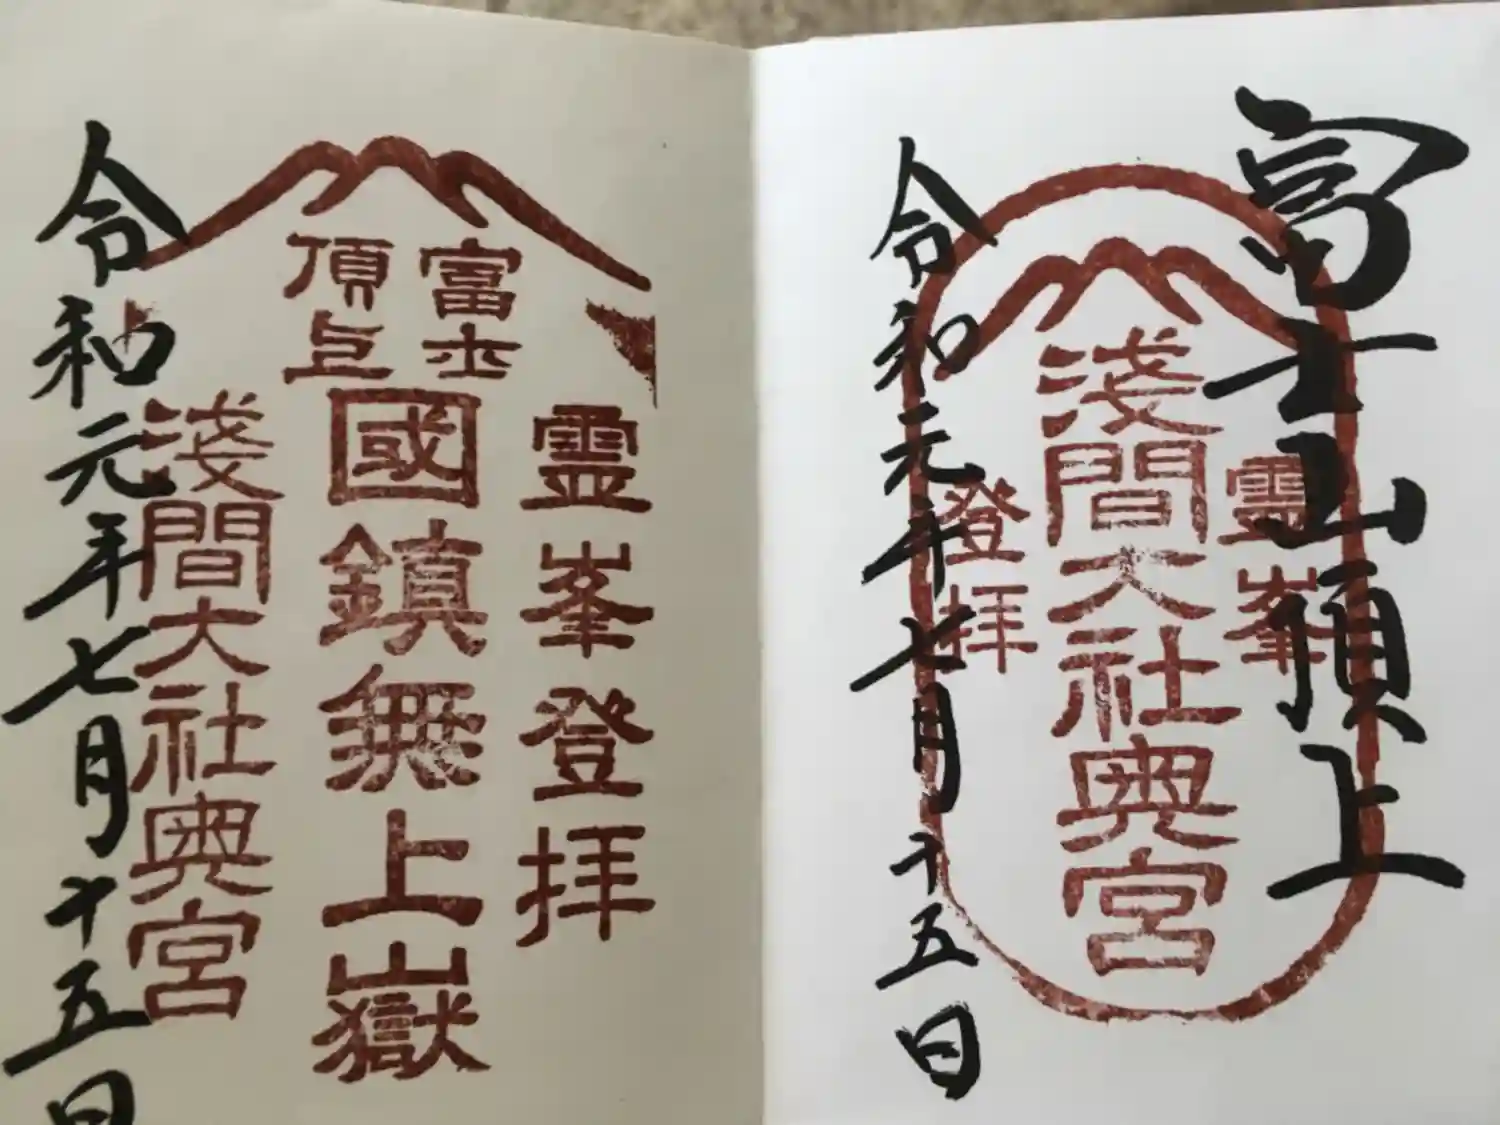 富士山頂上
霊峯
登拝
淺間大社奥宮
令和元年七月十五日
富士
頂上
霊峯登拝
國鎮無上嶽
淺間大社奥宮
令和元年七月十五日